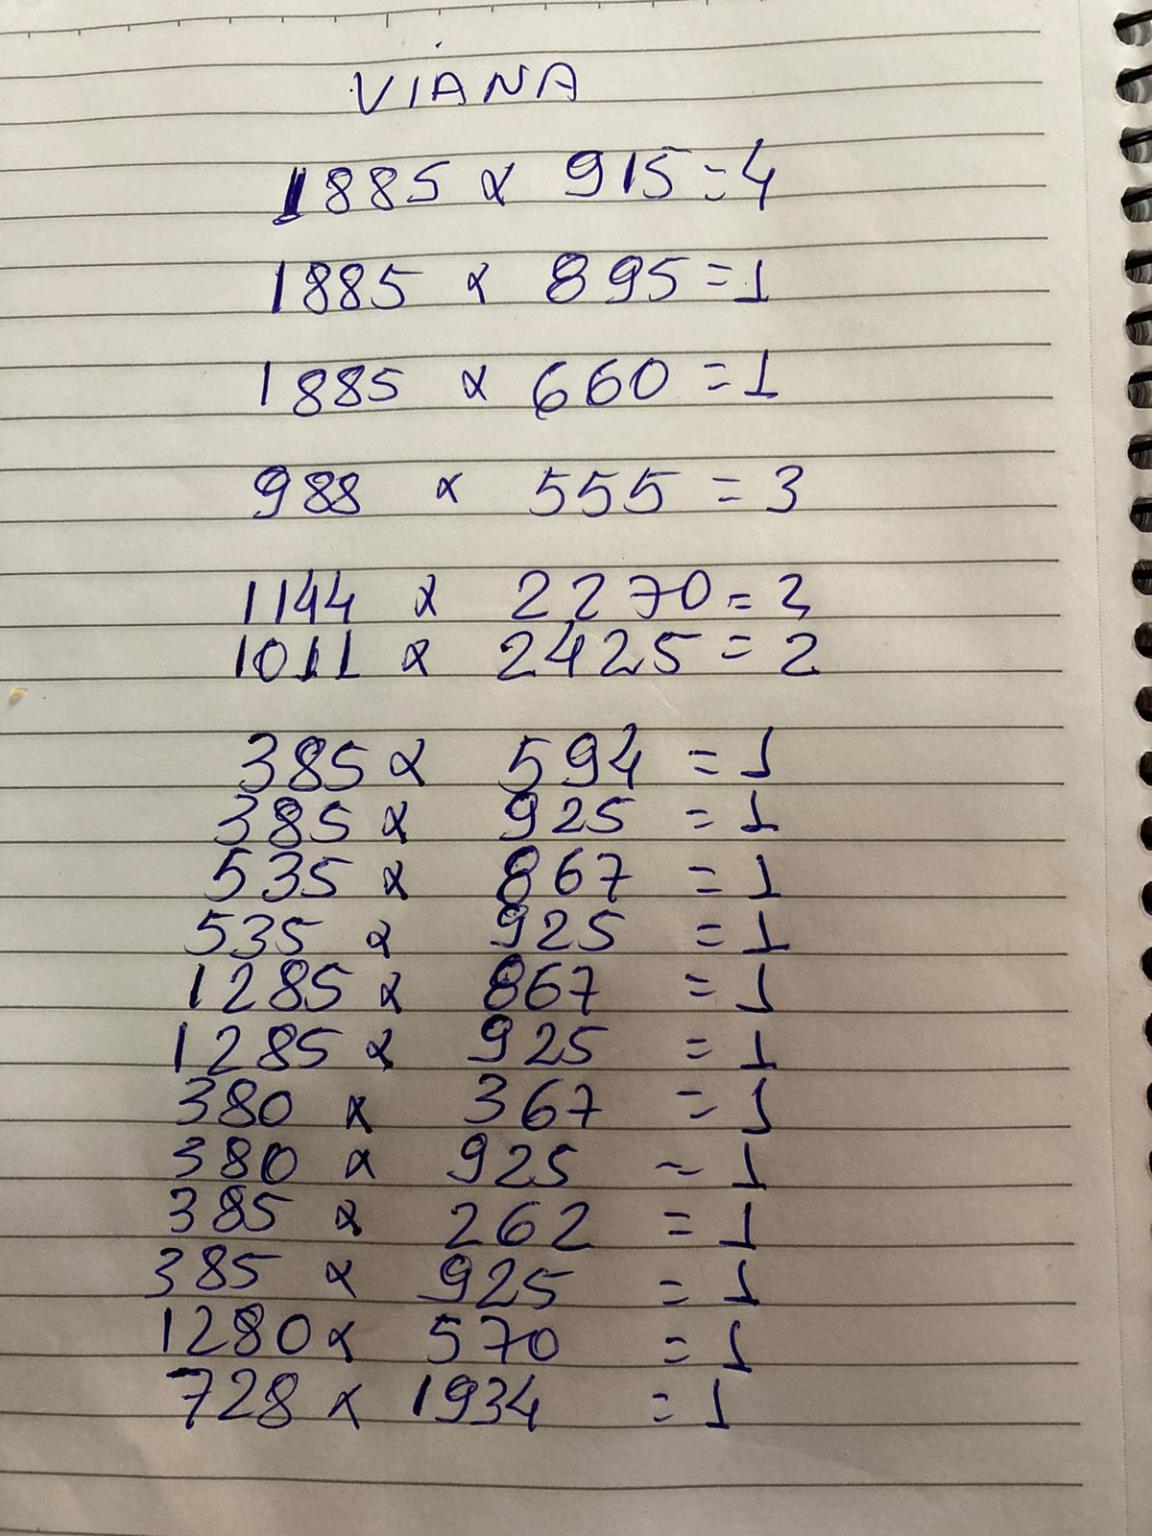 VIANA
1885 x 915 = 4
1885 x 895 = 1
1885 x 660 = 1
988 x 555 = 3
1144 x 2270 = 3
1011 x 2425 = 2
385 x 594 = 1
385 x 925 = 1
535 x 867 = 1
535 x 925 = 1
1285 x 867 = 1
1285 x 925 = 1
380 x 367 = 1
380 x 925 = 1
385 x 262 = 1
385 x 925 = 1
1280 x 570 = 1
728 x 1934 = 1